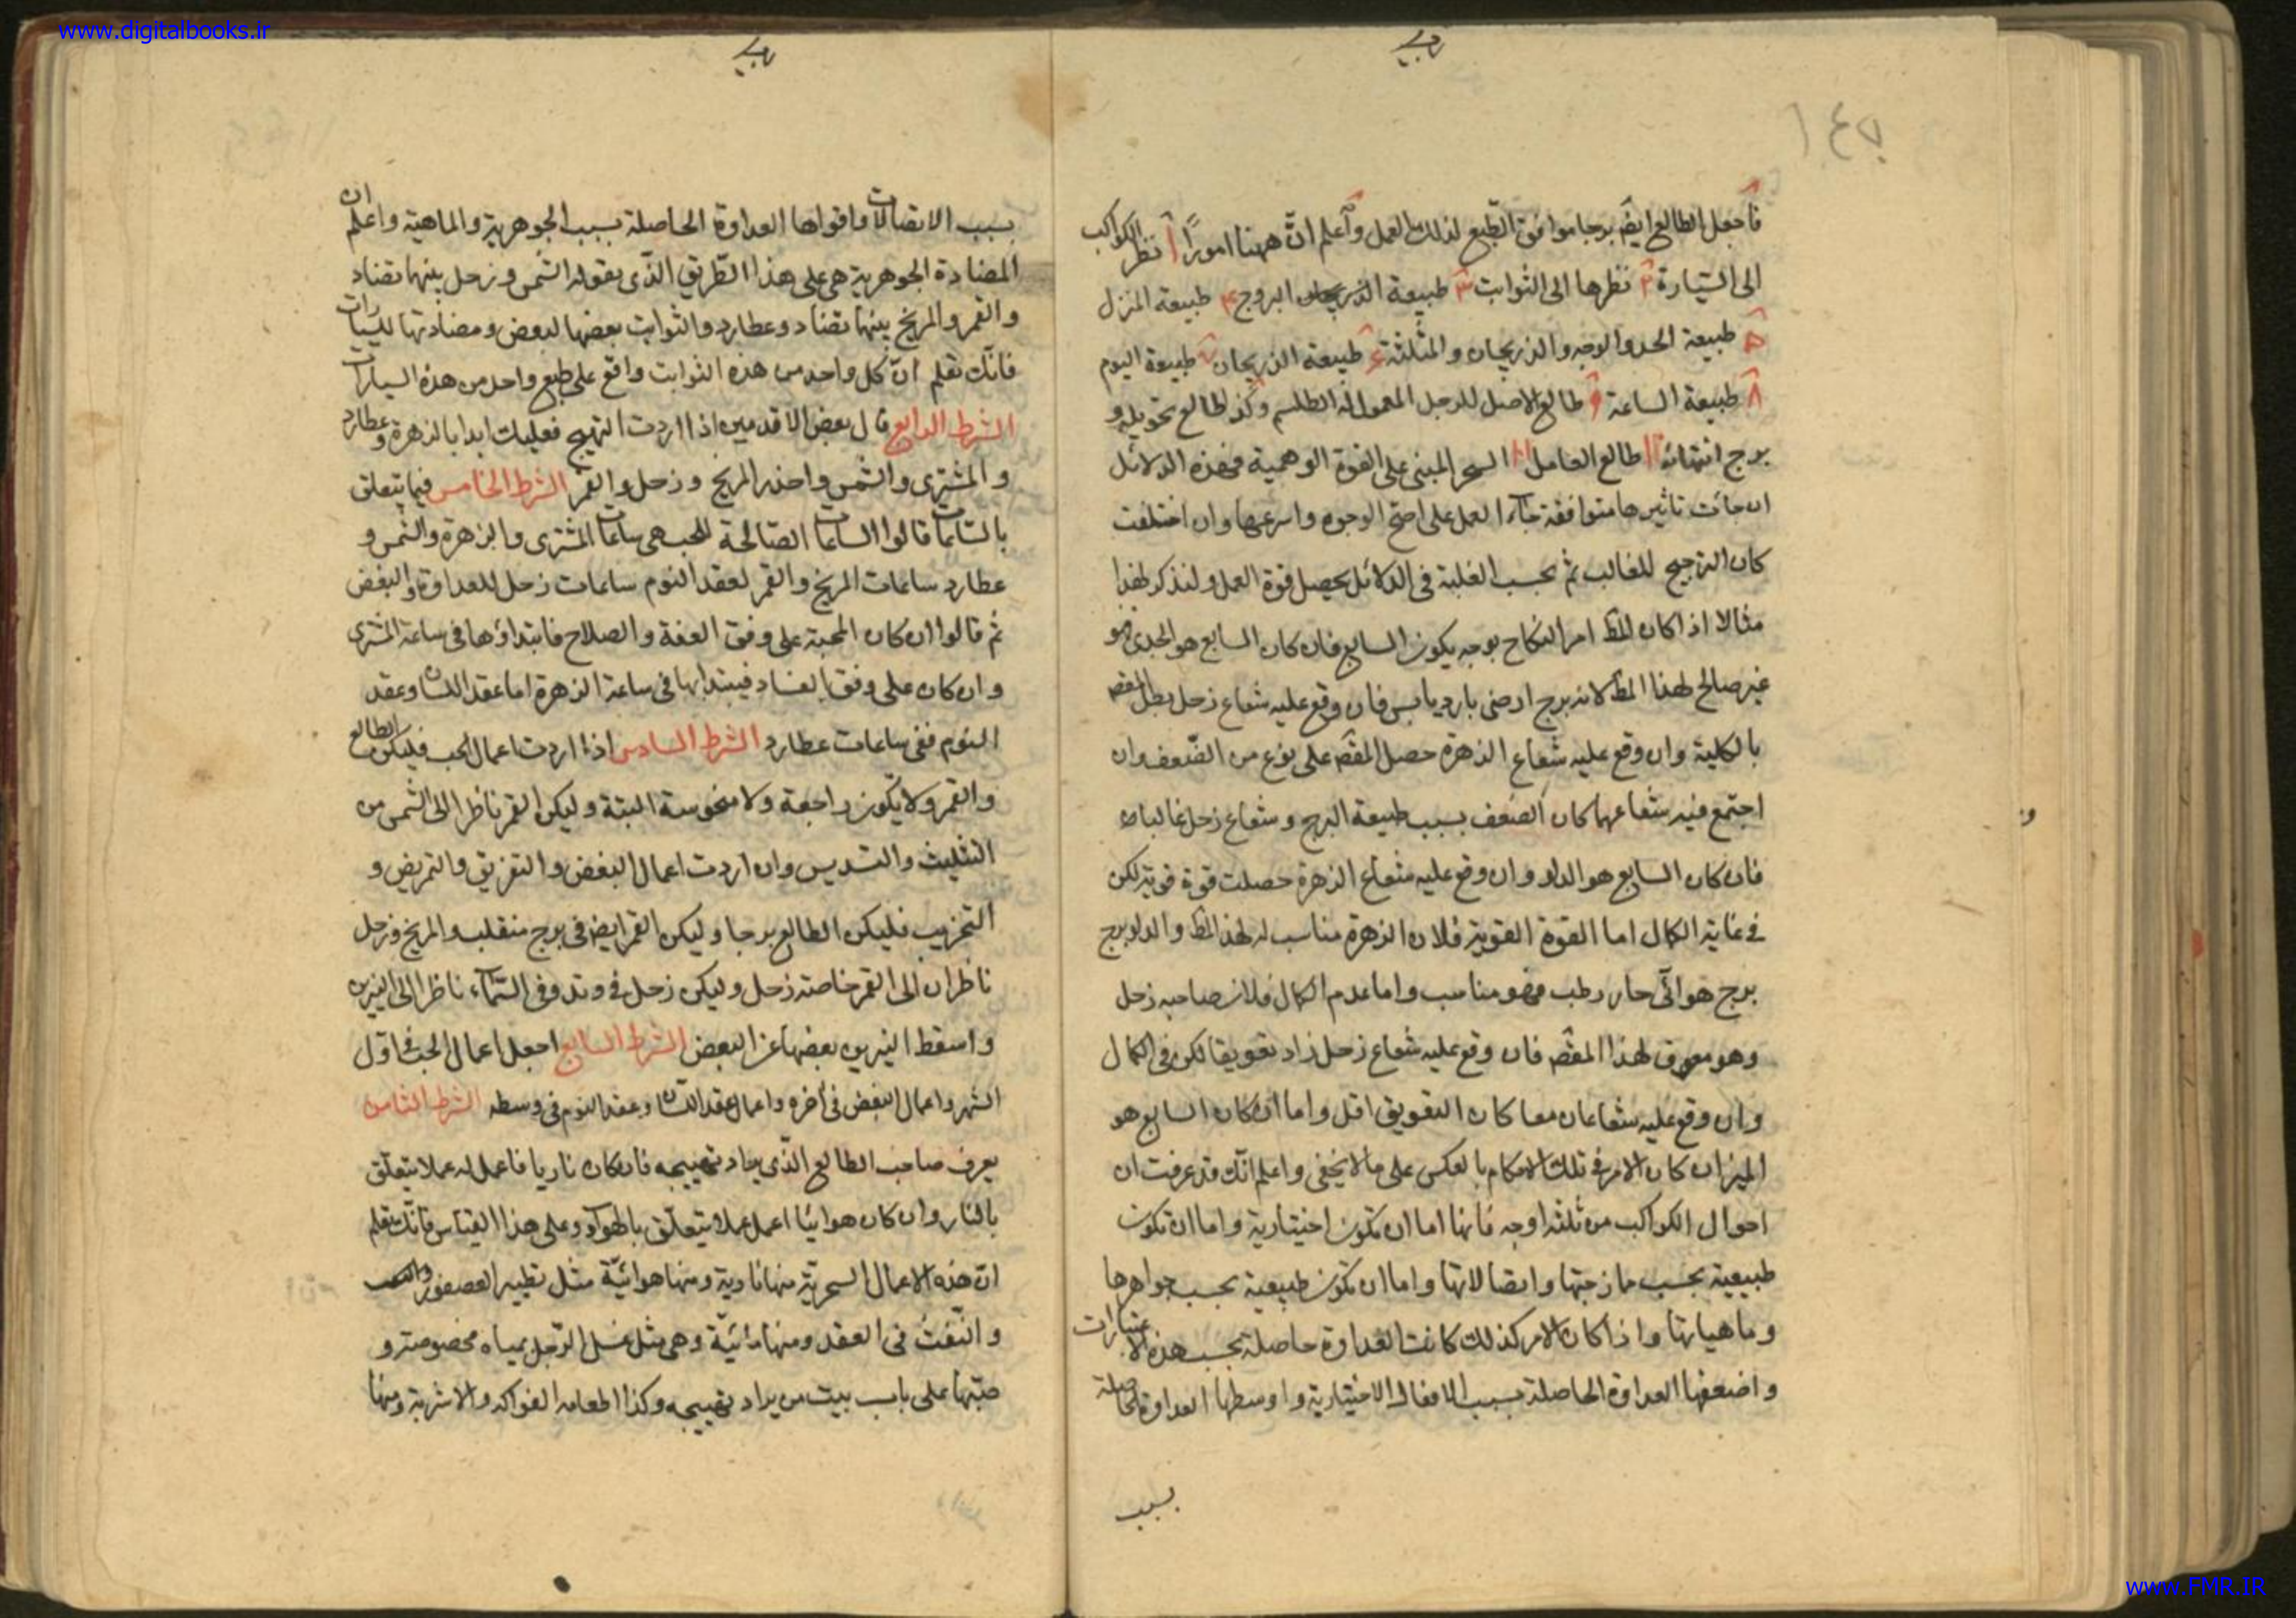 www.digitalbooks.ir
١٤٧
فاجعل الطالع ايض برجا موافق الطبع لذلك العمل واعلم انّ ههنا امورًا ١ نظر الكواكب
الى السيارة ٢ نظرها الى الثوابت ٣ طبيعة البروج ۴ طبيعة المنزل
۵ طبيعة الحد والوجه والدريجان والمثلثة ۶ طبيعة الدريجان ٧ طبيعة اليوم
٨ طبيعة الساعة ٩ طالع الاصل للرجل المعمول له الطلسم وكذا طالع تحويله و
برج انتهائه طالع العامل السحر المبنى على القوة الوهمية فهذه الدلائل
ان جائت تاثيرها متوافقة جاء العمل على اصح الوجوه واسرعها وان اختلفت
كان الترجيح للغالب ثم بحسب الغلبة فى الدلائل يحصل قوة العمل ولنذكر لهذا
مثالا اذا كان المط امر النكاح بوجه يكون السابع فان كان السابع هو الجدى فهو
غير صالح لهذا المط لانه برج ارضى بارد يابس فان وقع عليه شعاع زحل بطل المقصد
بالكلية وان وقع عليه شعاع الزهرة حصل المقصد على نوع من الضعف وان
اجتمع فيه شعاعهما كان الضعف بسبب طبيعة البرج وشعاع زحل غالبا
فان كان السابع هو الدلو وان وقع عليه شعاع الزهرة حصلت قوة قوية لكن
فى غاية الكمال اما القوة القوية فلان الزهرة مناسبه لهذا المط والدلو برج
برج هوائى حار رطب فهو مناسب واما عدم الكمال فلان صاحبه زحل
وهو معوق لهذا المقصد فان وقع عليه شعاع زحل زاد تعويقا لكن فى الكمال
وان وقع عليه شعاعان معا كان التعويق اقل واما ان كان السابع هو
الميزان كان الامر فى تلك الاحكام بالعكس على ما لا يخفى واعلم انّك قد عرفت ان
احوال الكواكب من ثلثه اوجه فانها اما ان تكون اختيارية واما ان تكون
طبيعية بحسب ممازجتها واتصالاتها واما ان تكون طبيعية بحسب جواهرها
وماهياتها واذا كان الامر كذلك كانت العداوة حاصلة بحسب هذه الاعتبارات
واضعفها العداوة الحاصلة بسبب الافعال الاختيارية واوسطها العداوة الحاصلة
بسبب
بسبب الاتصالات واقواها العداوة الحاصلة بسبب الجوهرية والماهية واعلم ان
المضادة الجوهرية هى على هذا الطريق الذى يقوله الشمس وزحل بينهما تضاد
والقمر والمريخ بينهما تضاد وعطارد والثوابت بعضها لبعض ومضادتها للسيارات
فانّك تعلم انّ كل واحد من هذه الثوابت واقع على طبع واحد من هذه السيارات
الشرط الرابع قال بعض الاقدمين اذا اردت التهييج فعليك ابدا بالزهرة وعطارد
والمشترى والشمس واحذر المريخ وزحل والقمر الشرط الخامس فيما يتعلق
بالساعات قالوا الساعات الصالحة للحب هى ساعات المشترى والزهرة والشمس و
عطارد ساعات المريخ والقمر لعقد النوم ساعات زحل للعداوة والبغض
ثم قالوا ان كان المحبة على وفق العفة والصلاح فابتداؤها فى ساعة المشترى
وان كان على وفق الفساد فيبتدا بها فى ساعة الزهرة اما عقد اللسان وعقد
النوم ففى ساعات عطارد الشرط السادس اذا اردت اعمال الحب فليكن الطالع
والقمر ولا يكون راجعة ولا منحوسة البتة وليكن القمر ناظرا الى الشمس من
التثليث والتسديس وان اردت اعمال البغض والتفريق والتمريض و
التخريب فليكن الطالع برجا وليكن القمر ايض فى برج منقلب والمريخ وزحل
ناظران الى القمر خاصة زحل وليكن زحل فى وتد وفى السماء ناظرا الى النيرين
واسقط النيرين بعضها عن البعض الشرط السابع اجعل اعمال الحب فى اول
الشهر واعمال البغض فى آخره واعمال عقد اللسان وعقد النوم فى وسطه الشرط الثامن
يعرف صاحب الطالع الذى يراد تهييجه فان كان ناريا فاعمل له عملا يتعلّق
بالنار وان كان هوائيا اعمل عملا يتعلّق بالهواء وعلى هذا القياس فانّك تعلم
انّ هذه الاعمال السحريّة منها نارية ومنها هوائيّة مثل تطيير العصفور
والنّفث فى العقد ومنها مائيّة وهى مثل غسل الرّجل بمياه مخصوصة و
صبّها على باب بيت من يراد تهييجه وكذا اطعامه الفواكه والاشربة ومنها
www.FMR.IR